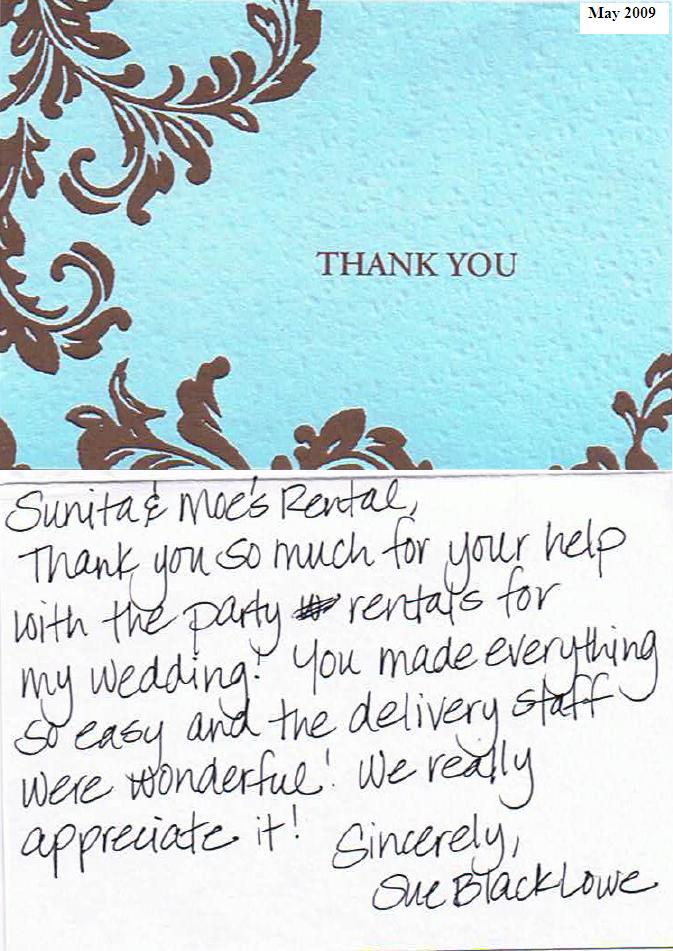 May 2009
THANK YOU
Sunita & Moe's Rental,
Thank you so much for your help
with the party rentals for
my wedding! You made everything
so easy and the delivery staff
were wonderful! We really
appreciate it!
Sincerely,
Sue Black Lowe